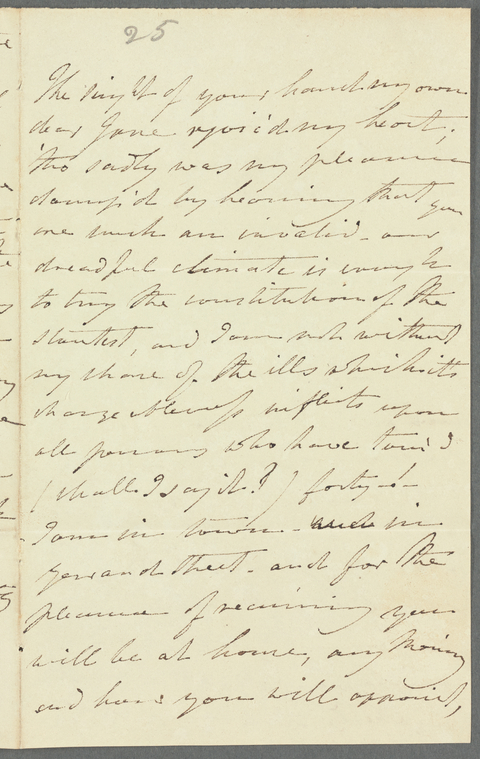 25
The sight of your hand my own
dear Jane rejoic'd my heart;
tho' sadly was my pleasure
damp'd by hearing that you
are such an invalid - our
dreadful climate is enough
to try the constitution of the
stoutest, and I am not without
my share of the ills which its
changeableness inflicts upon
all persons who have turn'd
(shall I say it?) forty-!-
I am in town - in
Gerrard Street - and for the
pleasure of receiving you
will be at home, any Morning
and hour you will appoint,